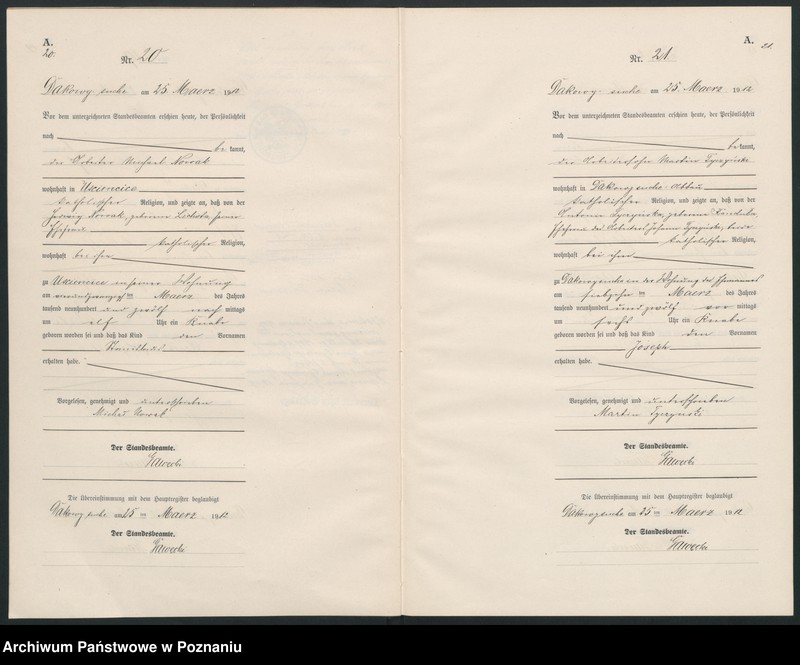 A.
20.
Nr. 20
Dakowy suche am 25 Maerz 1912
Vor dem unterzeichneten Standesbeamten erschien heute, der Persönlichkeit
nach
bekannt,
der Arbeiter Michael Nowak
wohnhaft in
katholischer Religion, und zeigte an, daß von der
Hedwig Nowak, geborene seiner
Ehefrau
katholischer Religion,
wohnhaft bei ihm
zu in seiner Wohnung
am ten Maerz des Jahres
tausend neunhundert und zwölf nach mittags
um elf Uhr ein Knabe
geboren worden sei und daß das Kind den Vornamen
erhalten habe.
Vorgelesen, genehmigt und unterschrieben
Michael Nowak
Der Standesbeamte.
Die Übereinstimmung mit dem Hauptregister beglaubigt
Dakowy suche am 25 ten Maerz 1912
Der Standesbeamte.
A.
21.
Nr. 21
Dakowy suche am 25 Maerz 1912
Vor dem unterzeichneten Standesbeamten erschien heute, der Persönlichkeit
nach
bekannt,
der Martin
wohnhaft in Dakowy suche
katholischer Religion, und zeigte an, daß von der
Antonie geborene
Ehefrau des Johann beide
katholischer Religion,
wohnhaft bei ihm
zu Dakowy suche in der Wohnung des Ehemannes
am siebzehn ten Maerz des Jahres
tausend neunhundert und zwölf vor mittags
um sechs Uhr ein Knabe
geboren worden sei und daß das Kind den Vornamen
Joseph
erhalten habe.
Vorgelesen, genehmigt und unterschrieben
Martin
Der Standesbeamte.
Die Übereinstimmung mit dem Hauptregister beglaubigt
Dakowy suche am 25 ten Maerz 1912
Der Standesbeamte.
Archiwum Państwowe w Poznaniu